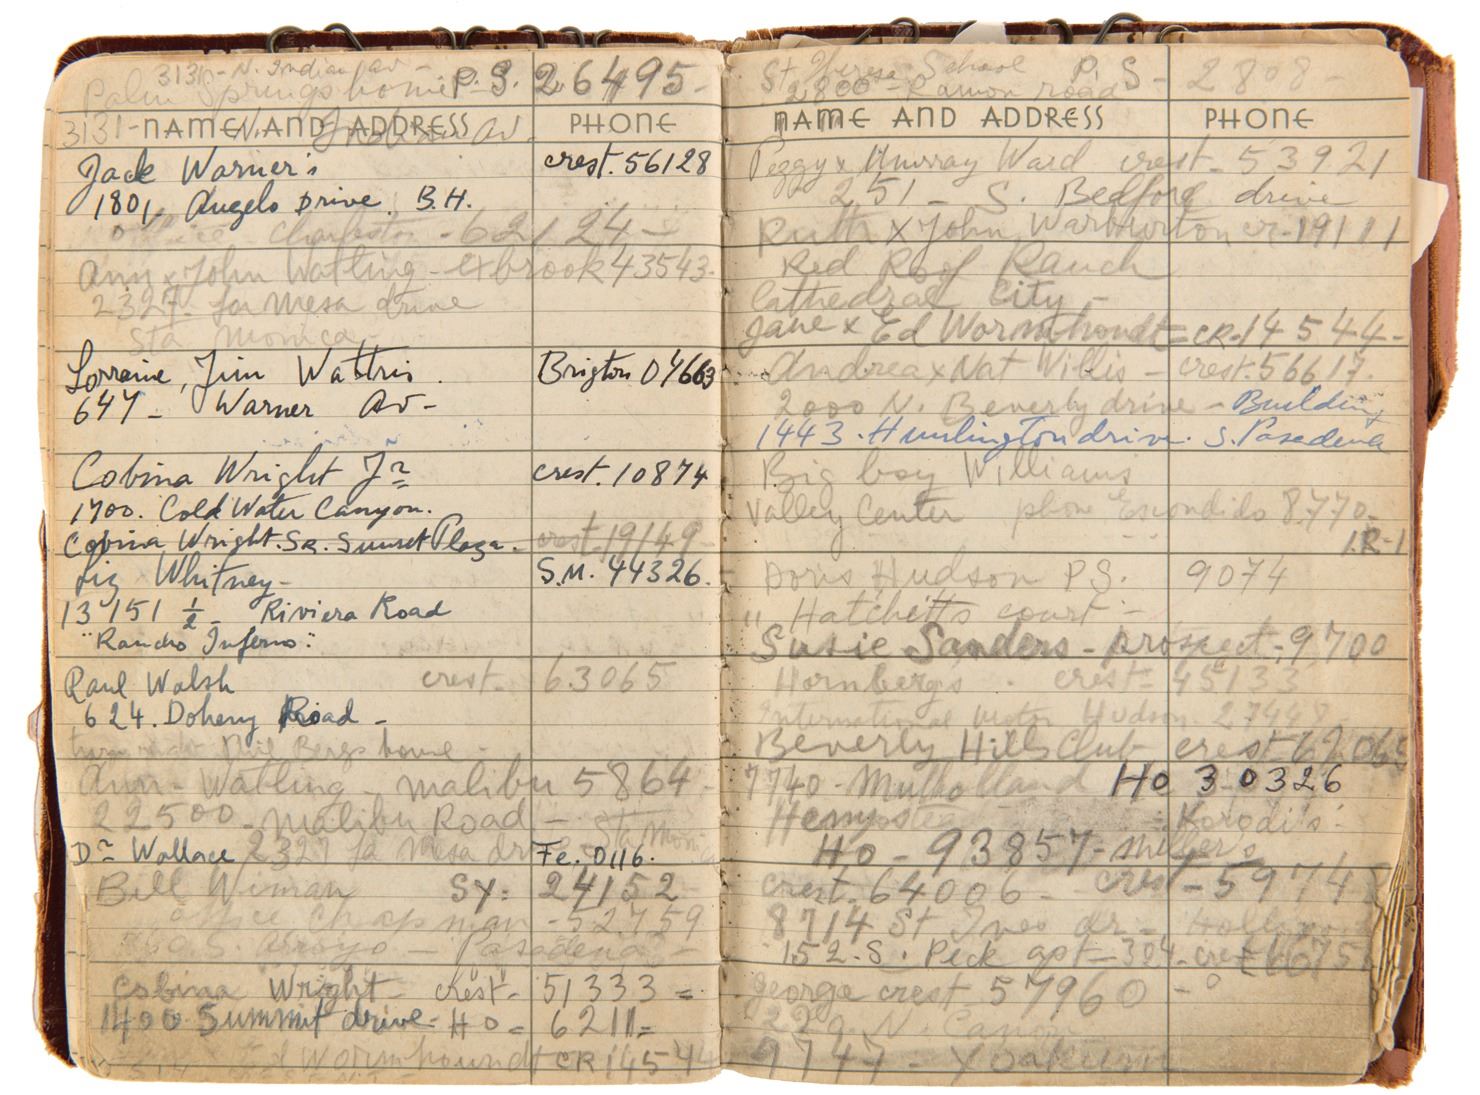 3131 - N. Indian av -
Palm Springs home P.S. 26495-
NAME AND ADDRESS PHONE
3131 - N. Indian Av.
Jack Warner's crest. 56128
1801, Angelo Drive. B.H.
office - Charleston - 62124 -
Ann x John Watling - exbrook 43543.
2327 - La Mesa drive
Sta Monica -
Lorraine, Jim Wattris. Brigton 04663
647 - Warner Av -
Cobina Wright Jr crest. 10874
1700. Cold Water Canyon.
Cobina Wright. Sr. Sunset Plaza. crest. 19149-
Liz Whitney - S.M. 44326.
13151 ½ - Riviera Road
"Rancho Inferno".
Raul Walsh crest. 63065
624. Doheny Road -
Phil Bergs house -
Ann - Watling - malibu 5864 -
22500 - malibu Road -
Dr Wallace 2327 La Mesa drive Sta Monica Fe. 0116.
Bill Wiman SY= 24152
office Chapman - 52759
S. Arroyo - Pasadena -
Cobina Wright crest - 51333 =
1400 Summit drive - HO = 6211=
Ed Wormhoundt CR 14544
St Theresa School P.S - 2808 -
2800 - Ramon road
NAME AND ADDRESS PHONE
Peggy x Murray Ward crest - 53921
251 - S. Bedford drive
Ruth x John Warburton cr - 19111
Red Roof Ranch
Cathedral City -
Jane x Ed Wormhoudt = CR. 14544 -
Andrea x Nat Willis - crest. 56617.
2000 N. Beverly drive - Building
1443. Huntington drive. S. Pasadena
Big boy Williams
Valley Center phone Escondido 8.770-
1.R-1
Doris Hudson P.S. 9074
" Hatchetts court -
Susie Sanders - prospect - 9700
Hornbergs. crest = 45133
International Motor Hudson. 27448 -
Beverly Hills Club crest - 67065
7740 - Mulholland HO 3-0326
Hempstead Korodi's -
HO - 93857 - Miller's
crest. 64006 - crest - 59774
8714 St Ives dr - Hollywood
152. S. Peck apt = 304 - cre
George crest - 57960 -
229 N. Canon
9747 - Yoakum